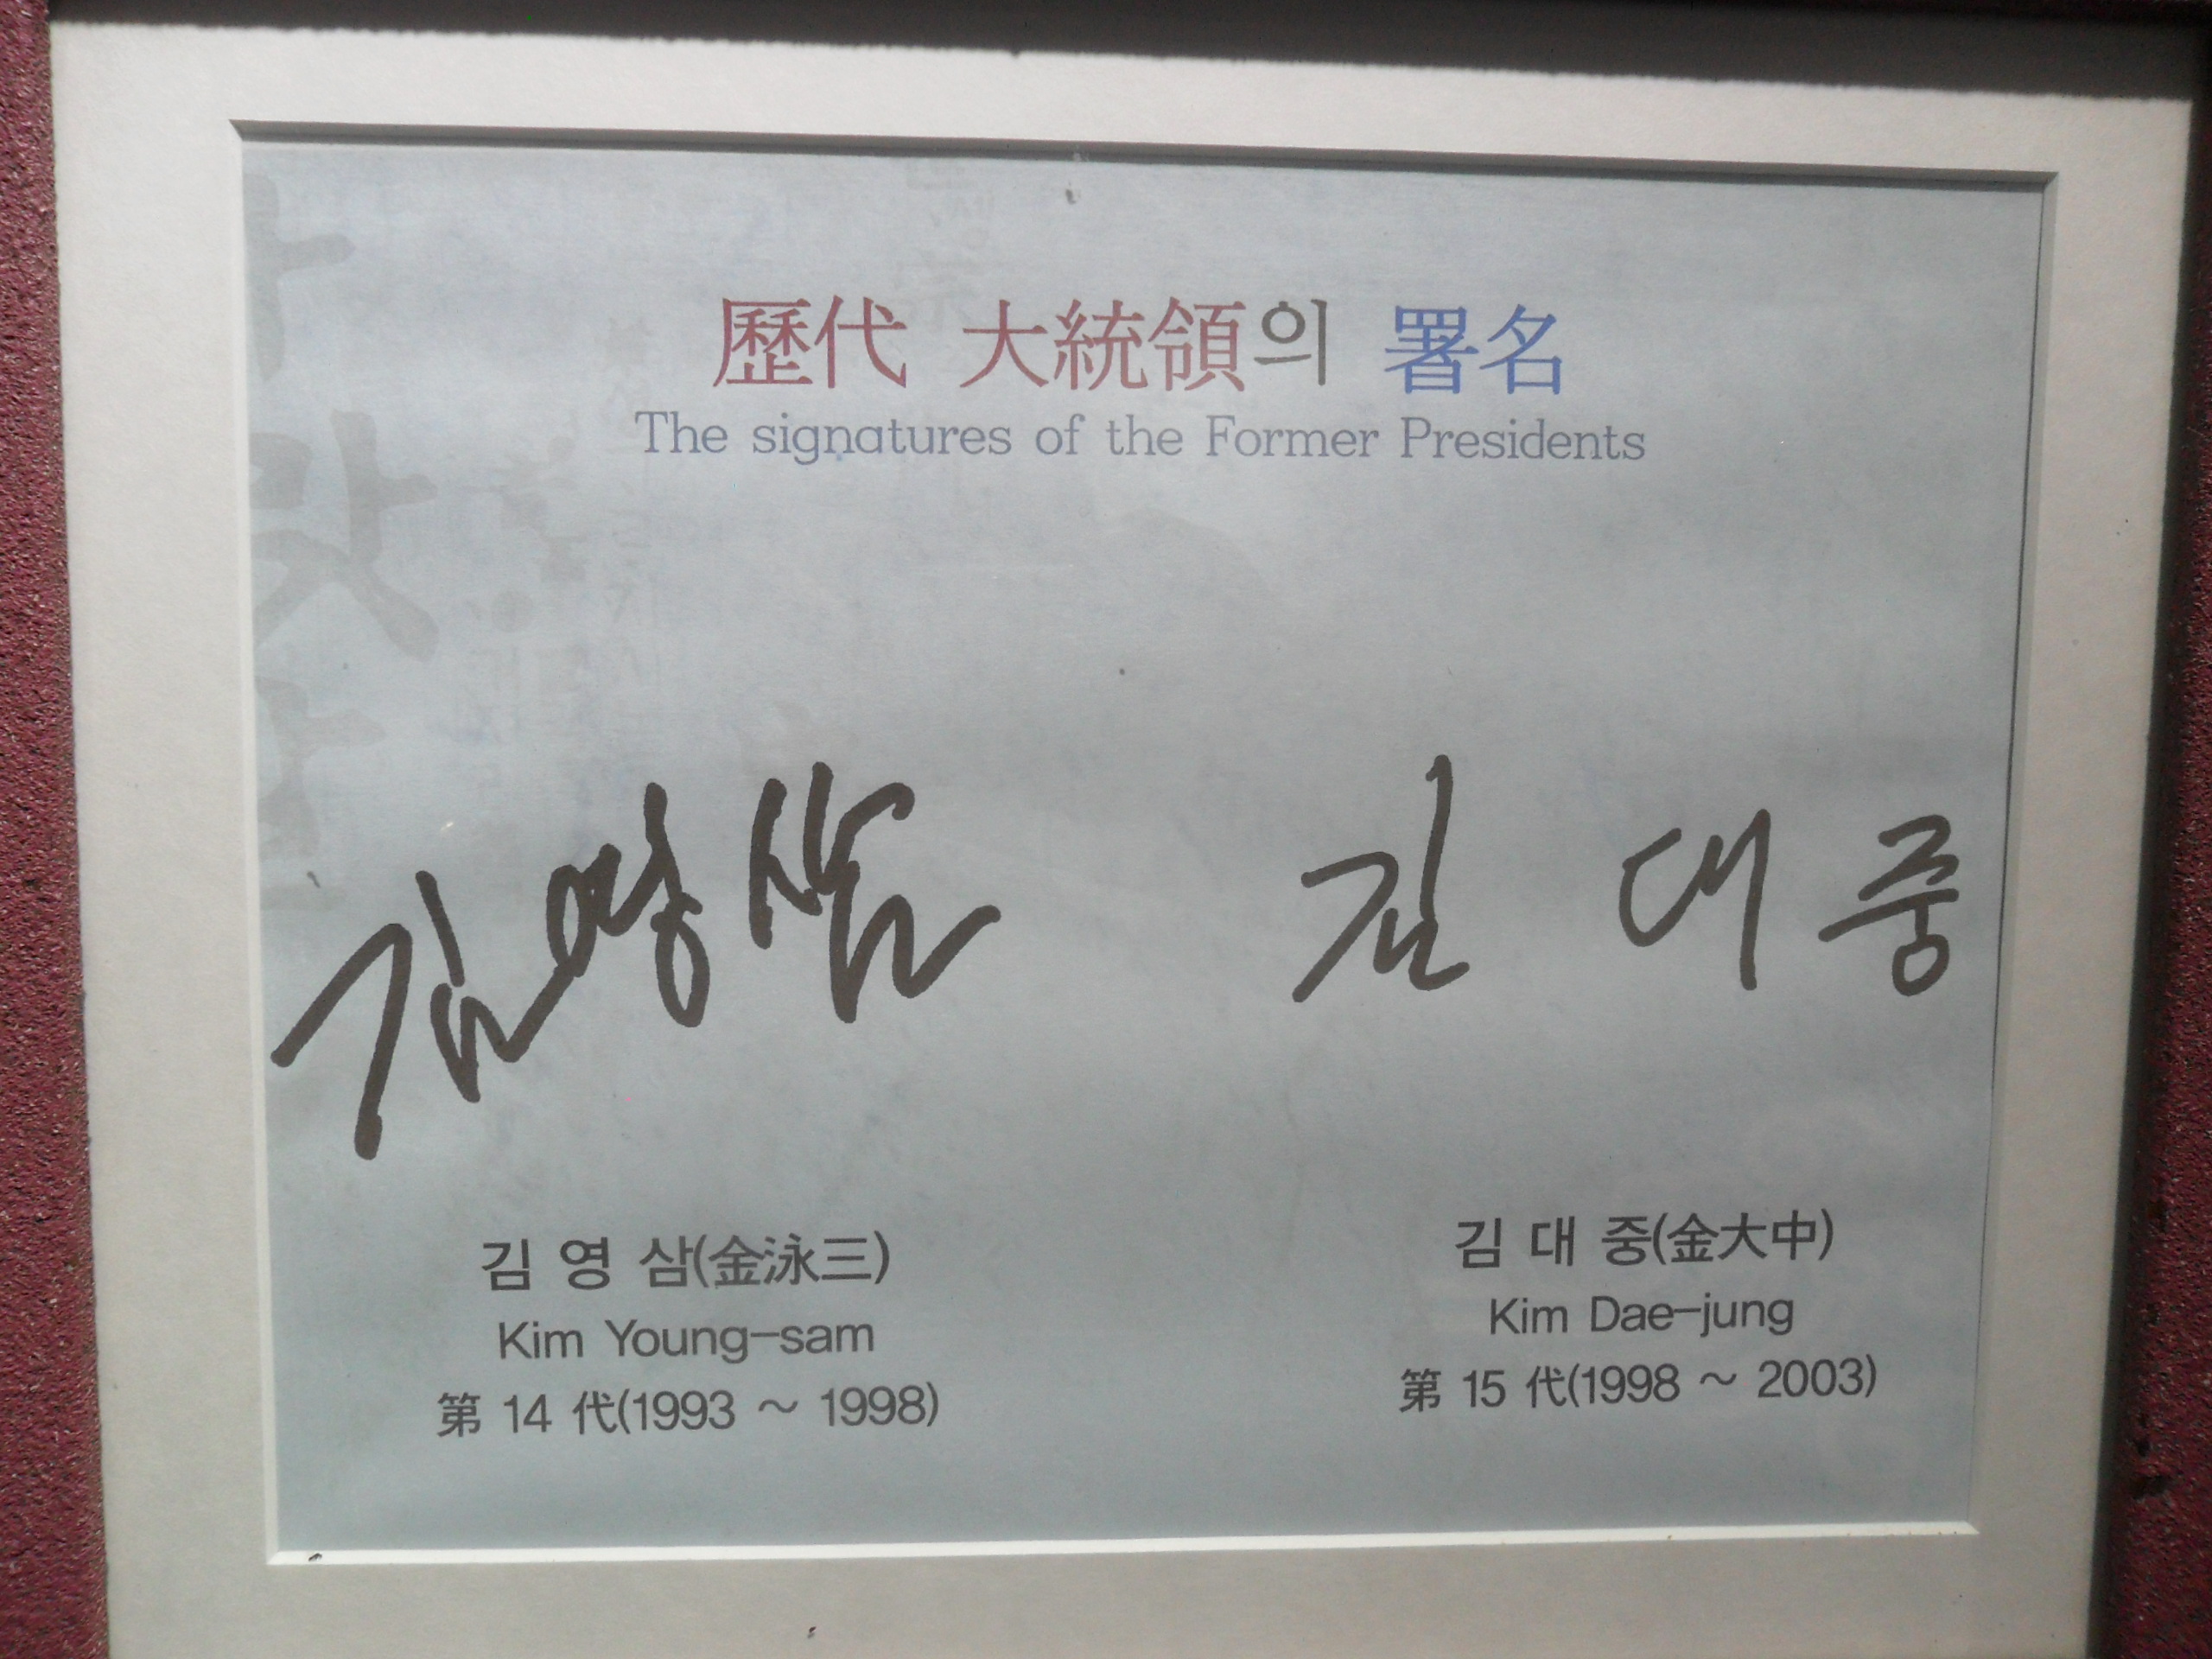 歷代 大統領의 署名
The signatures of the Former Presidents
김영삼 김대중
김 영 삼(金泳三)
Kim Young-sam
第 14 代(1993 ~ 1998)
김 대 중(金大中)
Kim Dae-jung
第 15 代(1998 ~ 2003)